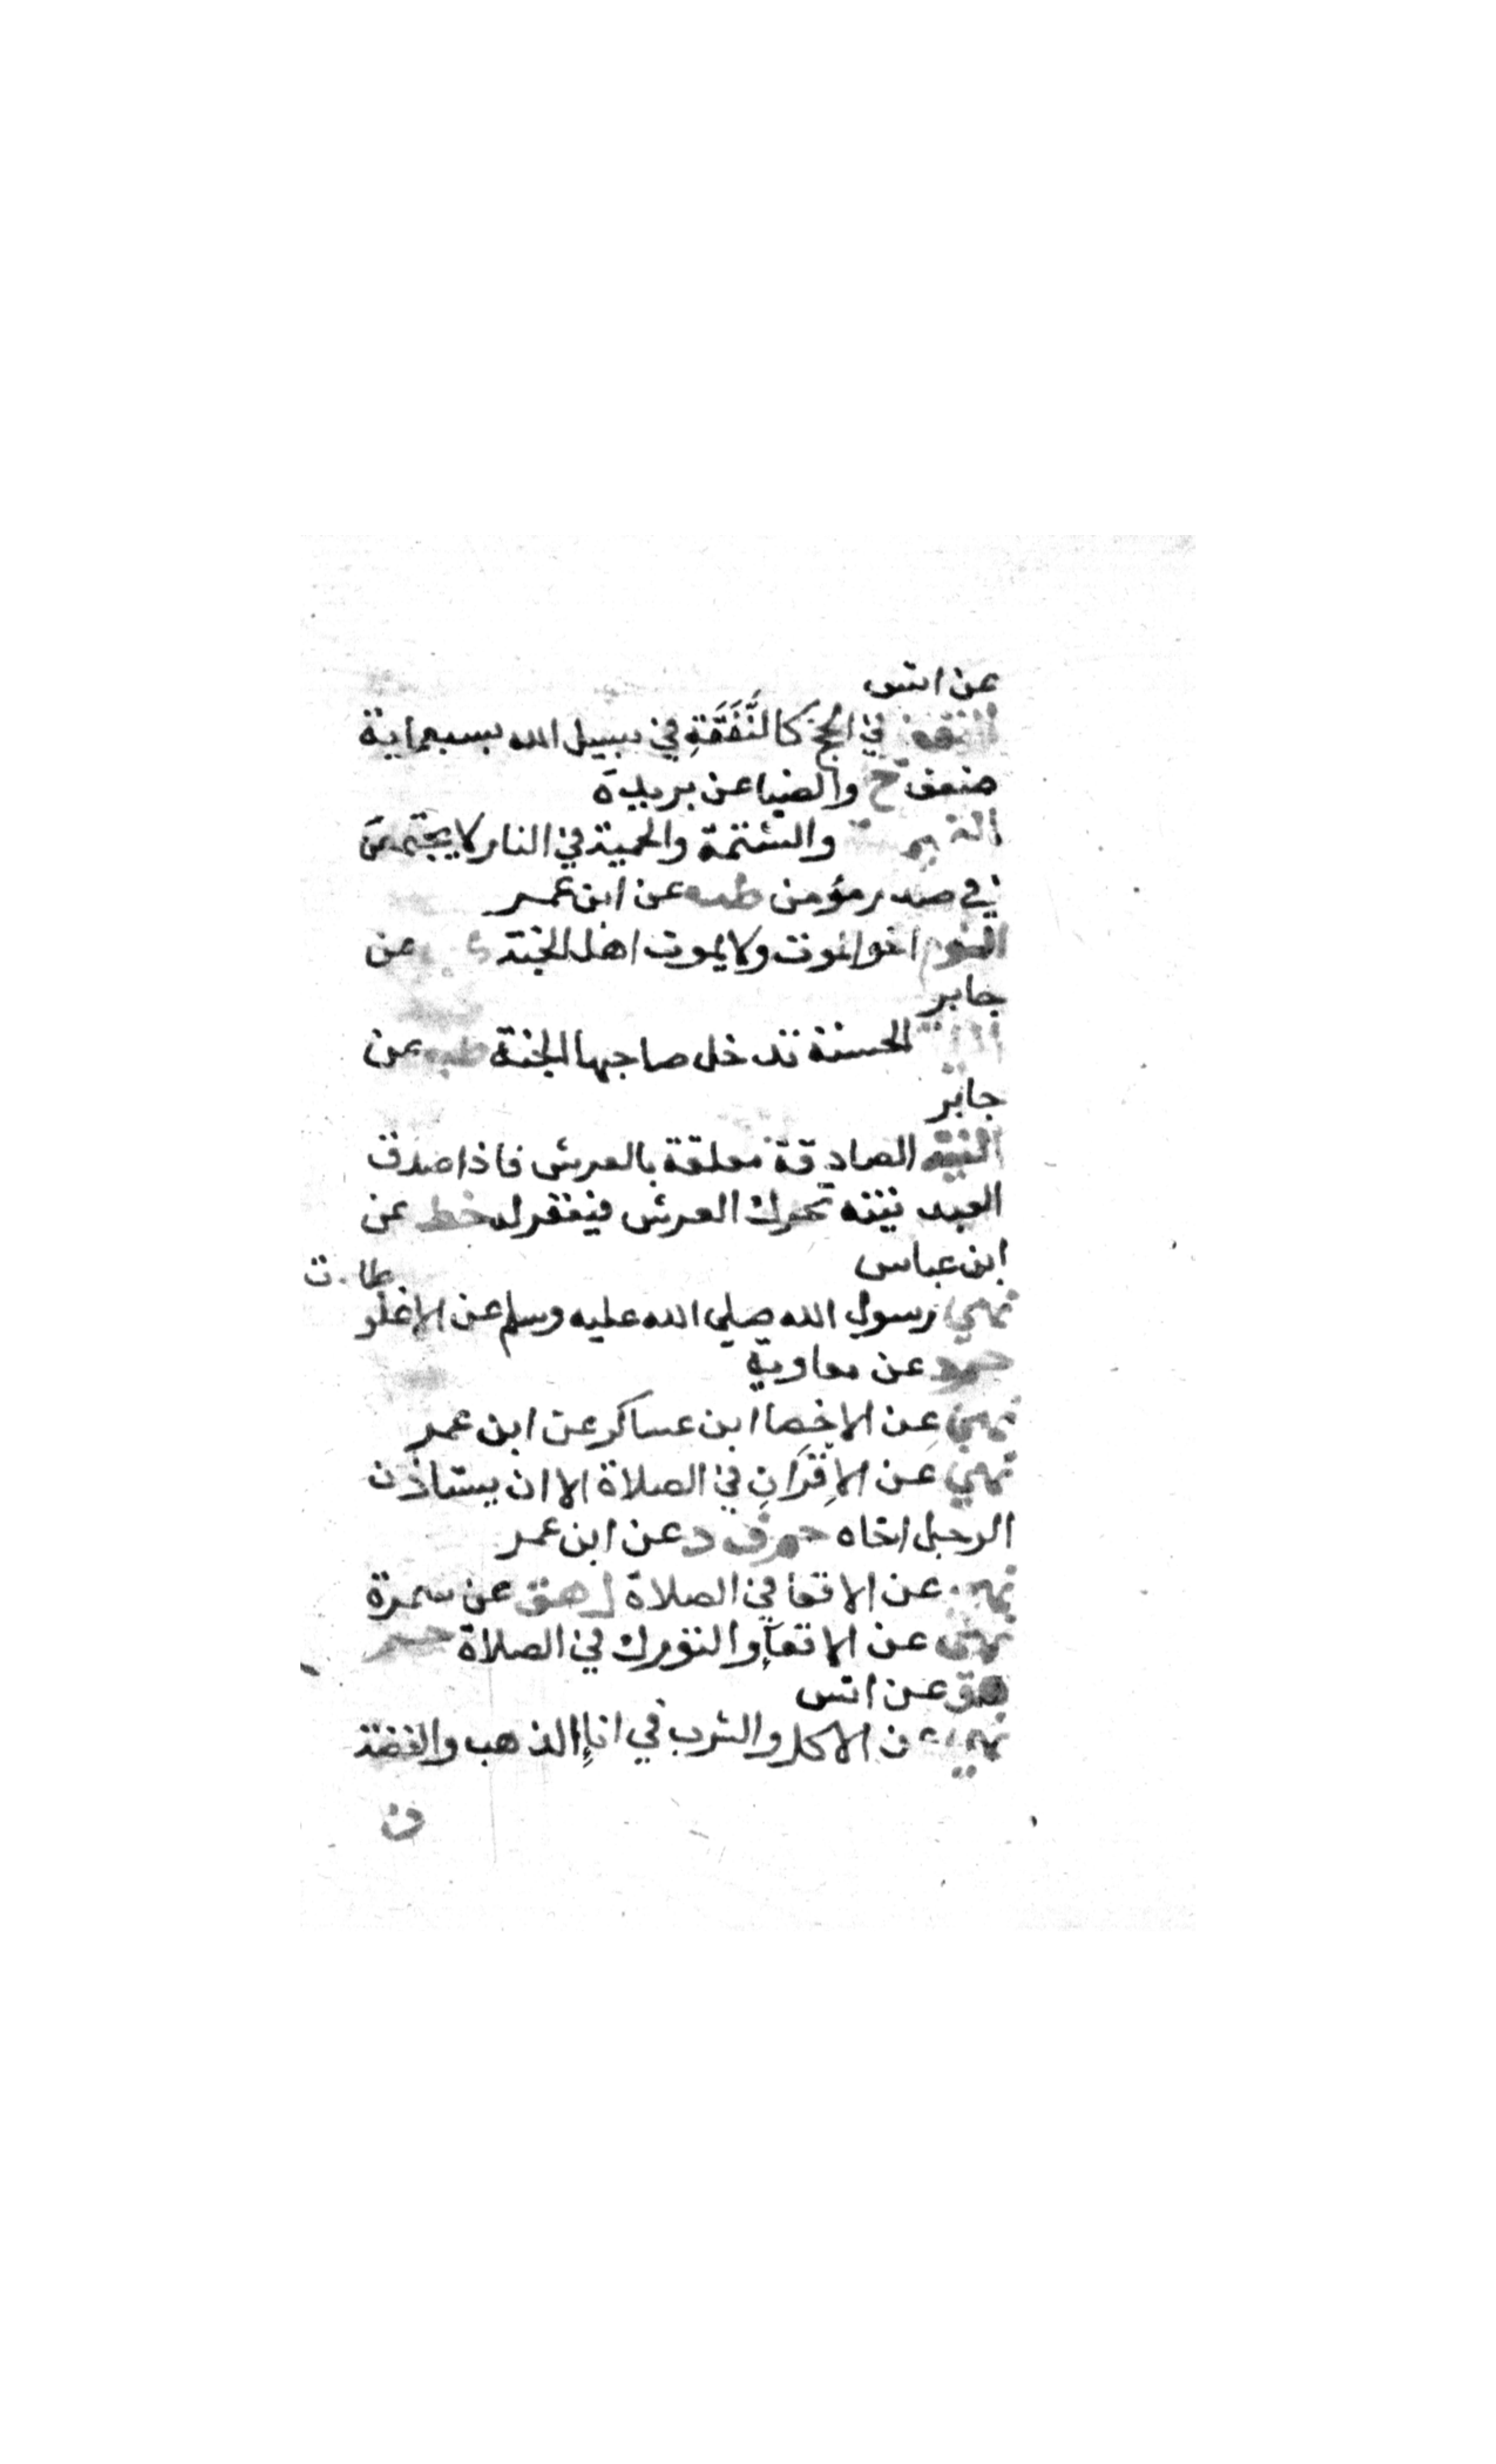 عن انس
النفقة في الحج كالنَّفَقَةِ في سبيل الله بسبعماية
ضعف والضيا عن بريدة
والشتمة والحمية في النار لا يجتمعن
في صدر مؤمن طب عن ابن عمر
النوم اخو الموت ولا يموت اهل الجنة عن
جابر
الحسنة تدخل صاحبها الجنة عن
جابر
النية الصادقة معلقة بالعرش فاذا صدق
العبد نيته تحرك العرش فيغفر له خط عن
ابن عباس
نهي رسول الله صلي الله عليه وسلم عن الاغلوطات
حم د عن معاوية
نهي عن الاخصا ابن عساكر عن ابن عمر
نهي عن الاِقْرَانِ في الصلاة الا ان يستاذن
الرجل اخاه حم ق د عن ابن عمر
نهي عن الاقعا في الصلاة ك هق عن سمرة
نهي عن الاقعآءِ والتورك في الصلاة حم
هق عن انس
نهي عن الاكل والشرب في اناءِ الذهب والفضة
ن